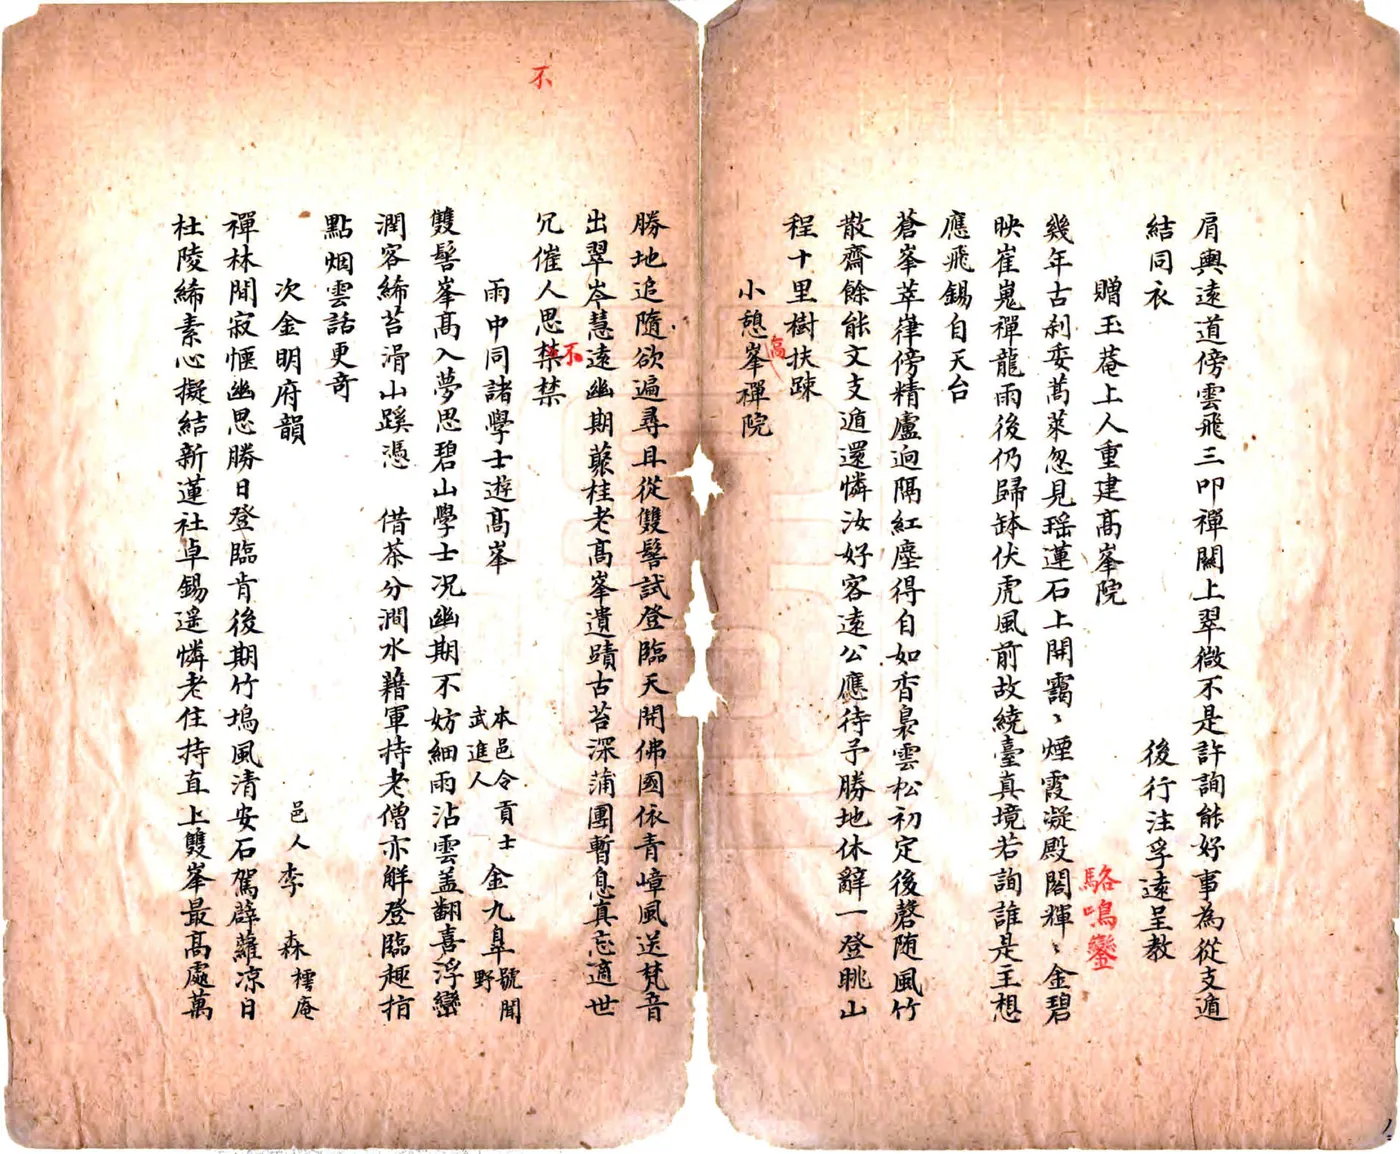 肩輿遠道傍雲飛三叩禪關上翠微不是許詢能好事為從支遁
結同衣 後行注孚遠呈教
贈玉菴上人重建高峯院 駱鳴鑾
幾年古刹委蒿萊忽見瑶蓮石上開靄〻煙霞凝殿閣輝〻金碧
映崔嵬禪龍雨後仍歸缽伏虎風前故繞臺真境若詢誰是主想
應飛錫自天台
蒼峯萃嵂傍精廬迥隔紅塵得自如香裊雲松初定後磬随風竹
散齋餘能文支遁還憐汝好客遠公應待予勝地休辭一登眺山
程十里樹扶踈
小憩峯禪院
高
勝地追隨欲遍尋且從雙髻試登臨天開佛國依青嶂風送梵音
出翠岑慧遠幽期叢桂老高峯遺蹟古苔深蒲團暫息真忘適世
冗催人思禁禁
不
不
雨中同諸學士遊高峯 本邑令貢士武進人 金九皐號聞野
雙髻峯高入夢思碧山學士况幽期不妨細雨沾雲盖翻喜浮巒
潤容締苔滑山蹊憑 借茶分澗水藉軍持老僧亦解登臨趣指
點烟雲話更奇
次金明府韻 邑人李 森樗庵
禪林閒寂愜幽思勝日登臨肯後期竹塢風清安石駕薜蘿凉日
杜陵締素心擬結新蓮社卓錫遥憐老住持直上雙峯最高處萬